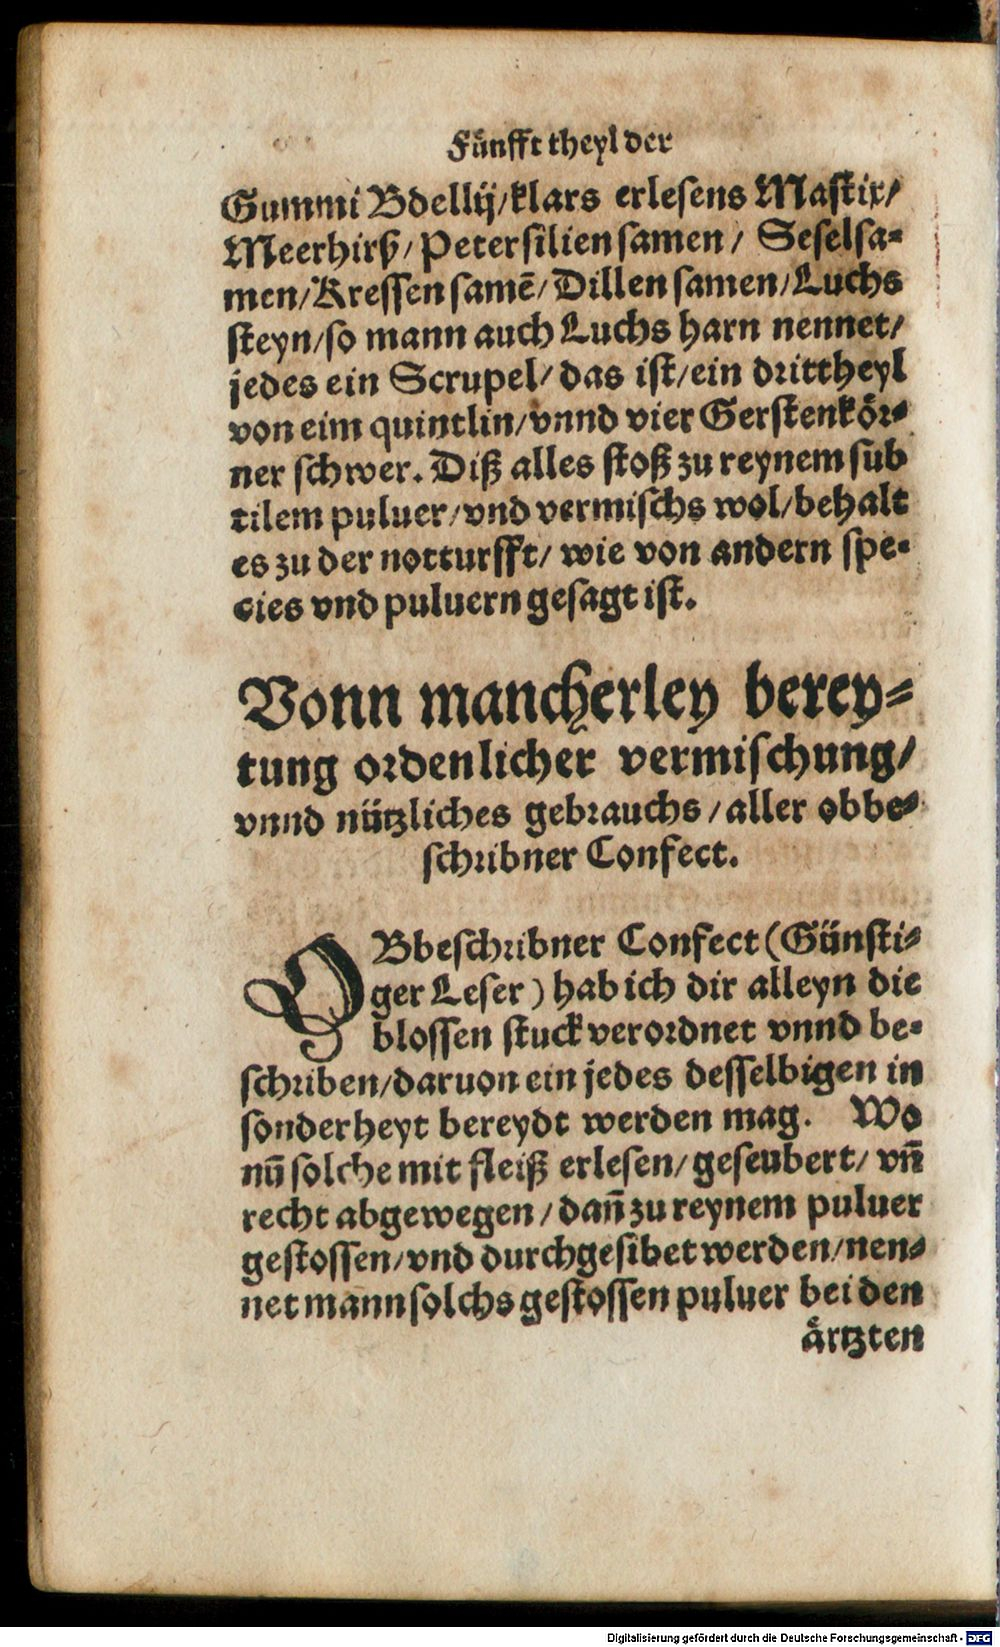 Fünfft theyl der
Gummi Bdellij/klars erlesens Mastix/
Meerhirß/Petersilien samen/ Seselsa-
men/Kressen samē/Dillen samen/Luchs
steyn/so mann auch Luchs harn nennet/
jedes ein Scrupel/das ist/ein drittheyl
von eim quintlin/vnnd vier Gerstenkör-
ner schwer. Diß alles stoß zu reynem sub
tilem puluer/vnd vermischs wol/behalt
es zu der notturfft/ wie von andern spe-
cies vnd puluern gesagt ist.
Vonn mancherley berey-
tung ordenlicher vermischung/
vnnd nützliches gebrauchs/aller obbe-
schribner Confect.
OBbeschribner Confect (Günsti-
ger Leser) hab ich dir alleyn die
blossen stuck verordnet vnnd be-
schriben/daruon ein jedes desselbigen in
sonderheyt bereydt werden mag. Wo
nū solche mit fleiß erlesen/geseubert/vn̄
recht abgewegen/dan̄ zu reynem puluer
gestossen/vnd durchgesibet werden/nen-
net mann solchs gestossen puluer bei den
ärtzten
Digitalisierung gefördert durch die Deutsche Forschungsgemeinschaft - DFG